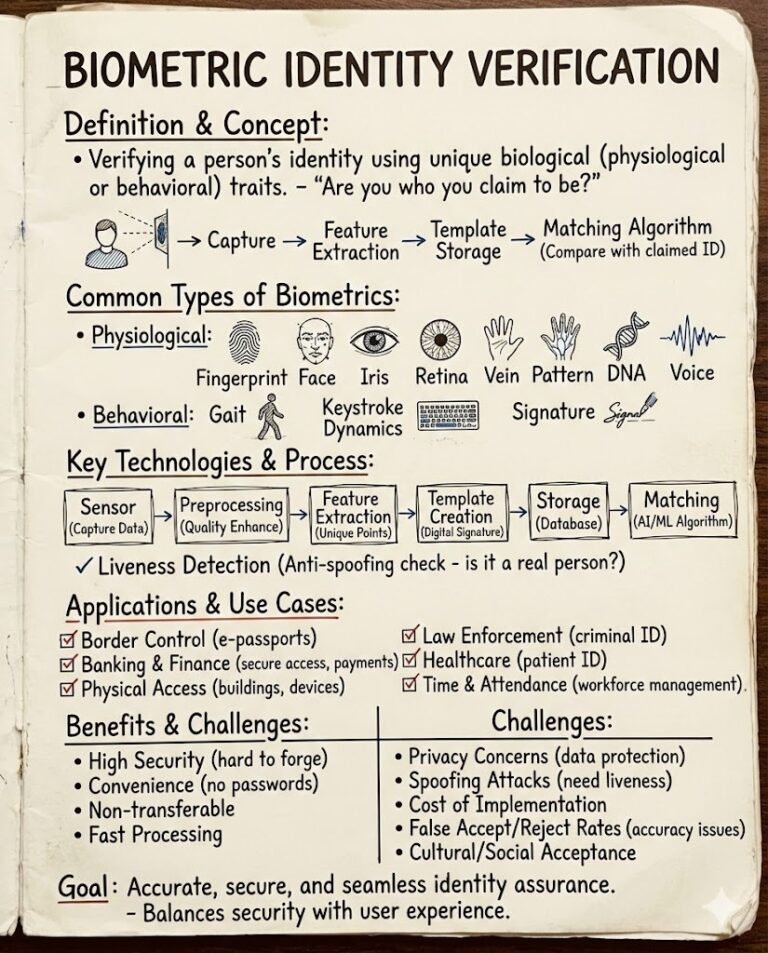 BIOMETRIC IDENTITY VERIFICATION
Definition & Concept:
• Verifying a person's identity using unique biological (physiological
or behavioral) traits. – "Are you who you claim to be?"
→ Capture → Feature Extraction → Template Storage → Matching Algorithm
(Compare with claimed ID)
Common Types of Biometrics:
• Physiological:
Fingerprint Face Iris Retina Vein Pattern DNA Voice
• Behavioral: Gait Keystroke Dynamics Signature Signal
Key Technologies & Process:
Sensor (Capture Data) → Preprocessing (Quality Enhance) → Feature Extraction (Unique Points) → Template Creation (Digital Signature) → Storage (Database) → Matching (AI/ML Algorithm)
✓ Liveness Detection (Anti-spoofing check - is it a real person?)
Applications & Use Cases:
☑ Border Control (e-passports)
☑ Banking & Finance (secure access, payments)
☑ Physical Access (buildings, devices)
☑ Law Enforcement (criminal ID)
☑ Healthcare (patient ID)
☑ Time & Attendance (workforce management).
Benefits & Challenges:
• High Security (hard to forge)
• Convenience (no passwords)
• Non-transferable
• Fast Processing
Challenges:
• Privacy Concerns (data protection)
• Spoofing Attacks (need liveness)
• Cost of Implementation
• False Accept/Reject Rates (accuracy issues)
• Cultural/Social Acceptance
Goal: Accurate, secure, and seamless identity assurance.
– Balances security with user experience.